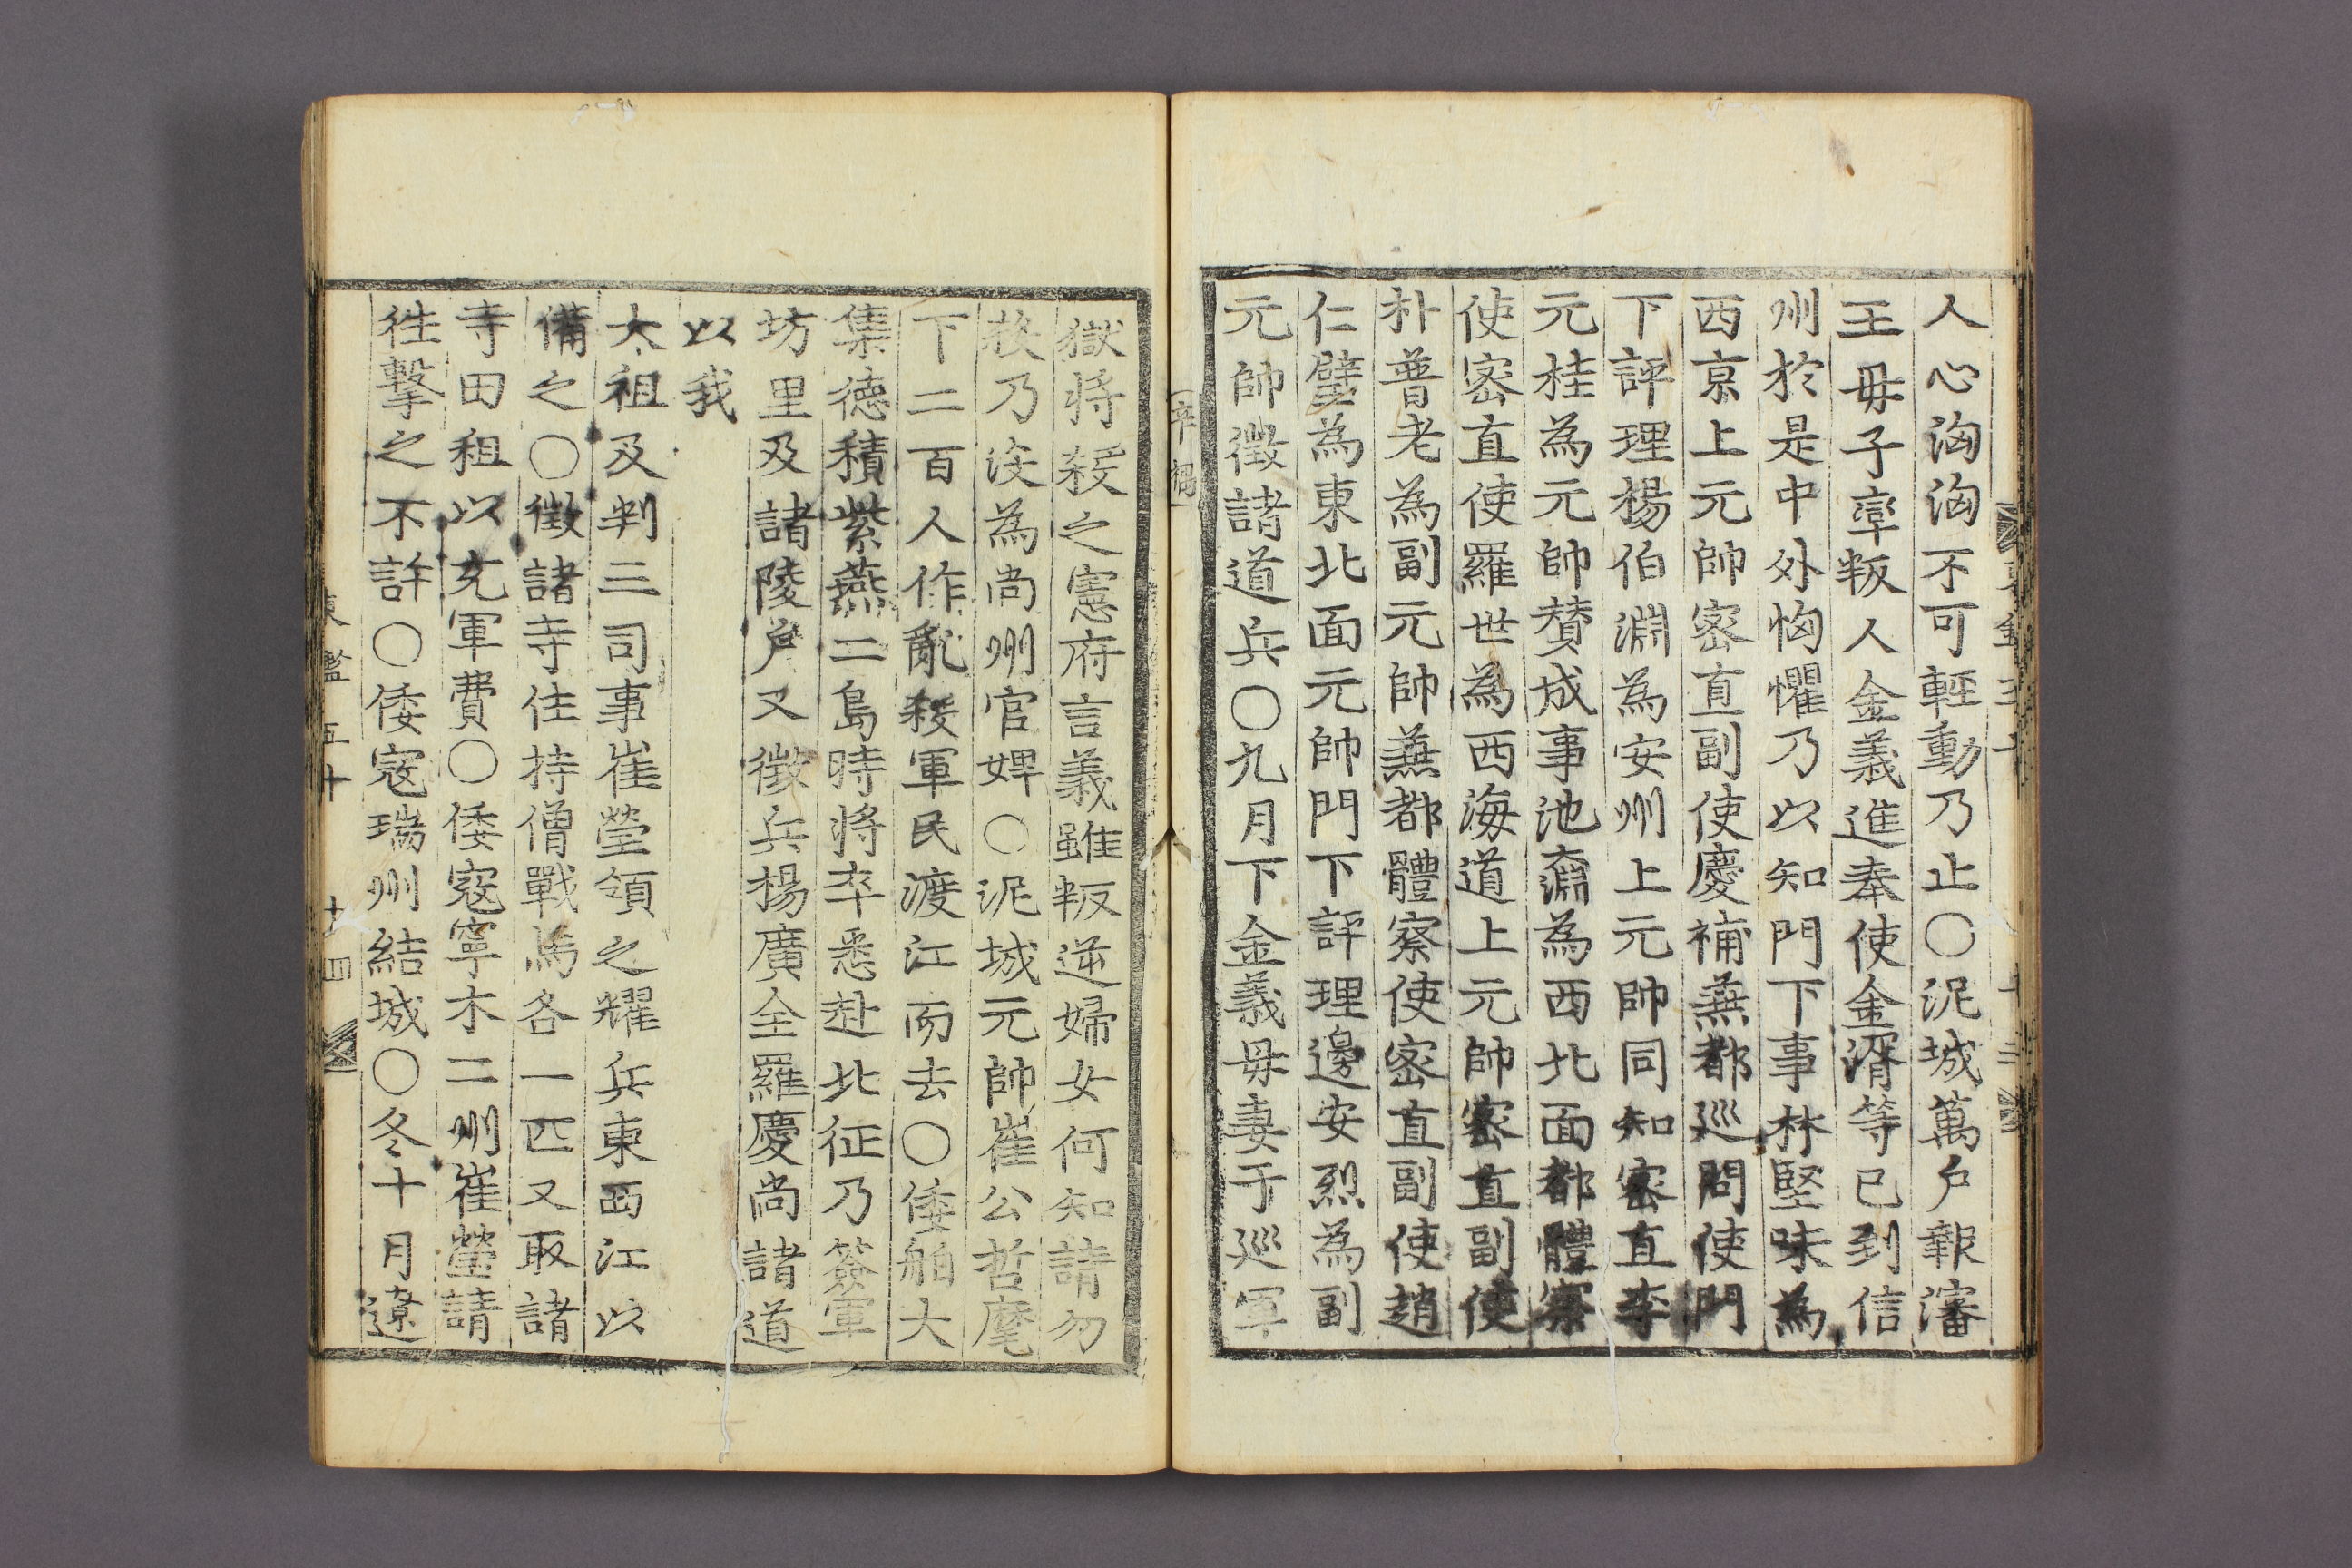 人心洶洶不可輕動乃止○泥城萬戶報瀋
王母子率叛人金義進奉使金湑等已到信
州於是中外恟懼乃以知門下事林堅味為
西京上元帥密直副使慶補兼都巡問使門
下評理楊伯淵為安州上元帥同知密直李
元桂為元帥賛成事池奫為西北面都體察
使密直使羅世為西海道上元帥密直副使
朴普老為副元帥兼都體察使密直副使趙
仁璧為東北面元帥門下評理邊安烈為副
元帥徵諸道兵○九月下金義母妻于巡軍
辛禑
獄將殺之憲府言義雖叛逆婦女何知請勿
殺乃沒為尚州官婢○泥城元帥崔公哲麾
下二百人作亂殺軍民渡江而去○倭舶大
集德積紫燕二島時將卒悉赴北征乃簽軍
坊里及諸陵戶又徵兵楊廣全羅慶尚諸道
以我
太祖及判三司事崔瑩領之耀兵東西江以
備之○徵諸寺住持僧戰馬各一匹又取諸
寺田租以充軍費○倭寇寧木二州崔瑩請
往擊之不許○倭寇瑞州結城○冬十月遼
東鑑五十 十四